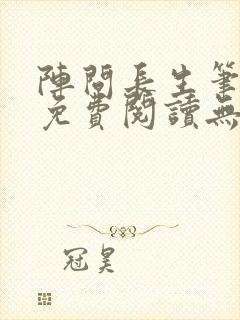 陣問長生筆
免費閱讀無
冠昊